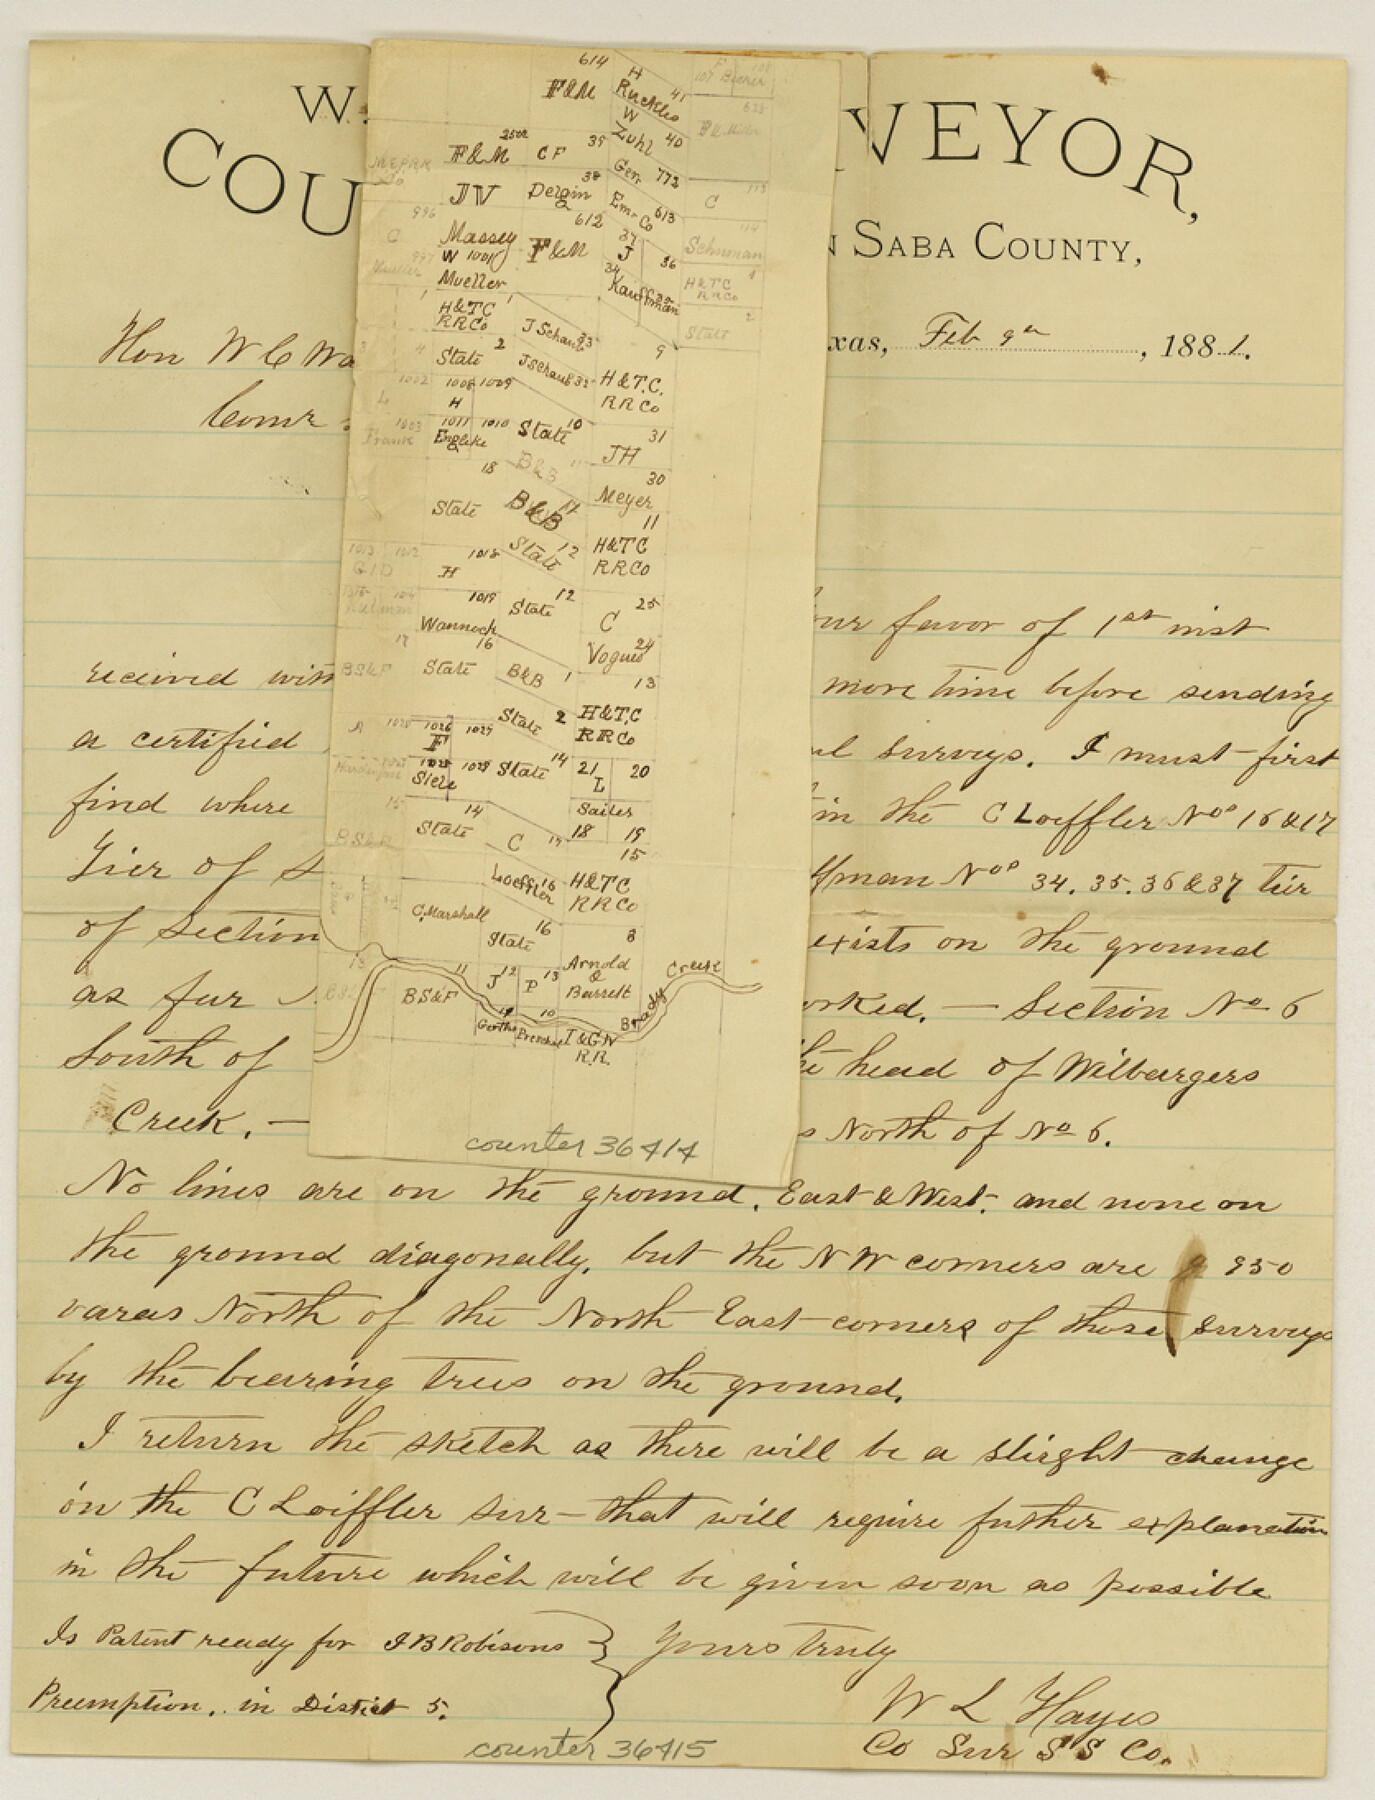 W.
COU
VEYOR,
SABA COUNTY,
xas, Feb 9th, 1881.
Hon W C Wa
Comr
our favor of 1st inst
recieved with
more time before sending
a certified
surveys. I must first
find where
in the C Loeffler Nos 16 & 17
Tier of S
ffman Nos 34. 35. 36 & 37 tier
of Section
exists on the ground
as far
orked. — Section No 6
South of
the head of Wilbargers
Creek. —
s North of No 6.
No lines are on the ground. East & West. and none on
the ground diagonally, but the N W corners are 950
varas North of the North East corners of these surveys
by the bearing trees on the ground.
I return the sketch as there will be a slirght change
in the C Loiffler sur— that will require futher explanation
in the future which will be given soon as possible
Is Patent ready for J B Robisons
Preemption. in District 5.
Yours truly
W L Hayes
Co Sur S S Co.
counter 36415
614
H
F&M
Ruckles 41
W
Zuhl 40
F&M
C F 39
Ger. 772
JV
Dergin 38
Em. Co 613
C
996
C
Massey
612
F&M
37
J
36
Schuman
W 1001
Mueller
34
Kauffman
H&TC
RRCo
1
H&TC
RRCo
1
J Schaub 33
State
2
State 2
J Schaub 32
9
H&T.C.
RRCo
1002
1008 1009
H
1003
Frank
1011 1010
Englke
State 10
31
JH
B&B 11
30
Meyer
18
State
B&B
11
H&TC
RRCo
State 12
1013 1012
1018
H
1019
Wannock
State 12
25
C
24
17
16
State
BS&F
B&B 1
13
H&T.C
RRCo
State 2
1026 1027
F
1028 1029
State 14
21
L
20
Sailer
18 19
15
14
State
BS&F
C 17
Loeffler 16
15
H&TC
RRCo
C. Marshall
16
State
8
Arnold
&
Barrett
11
BS&F
12
J
13
P
10
I&GN
R.R.
Brady Creek
counter 36414